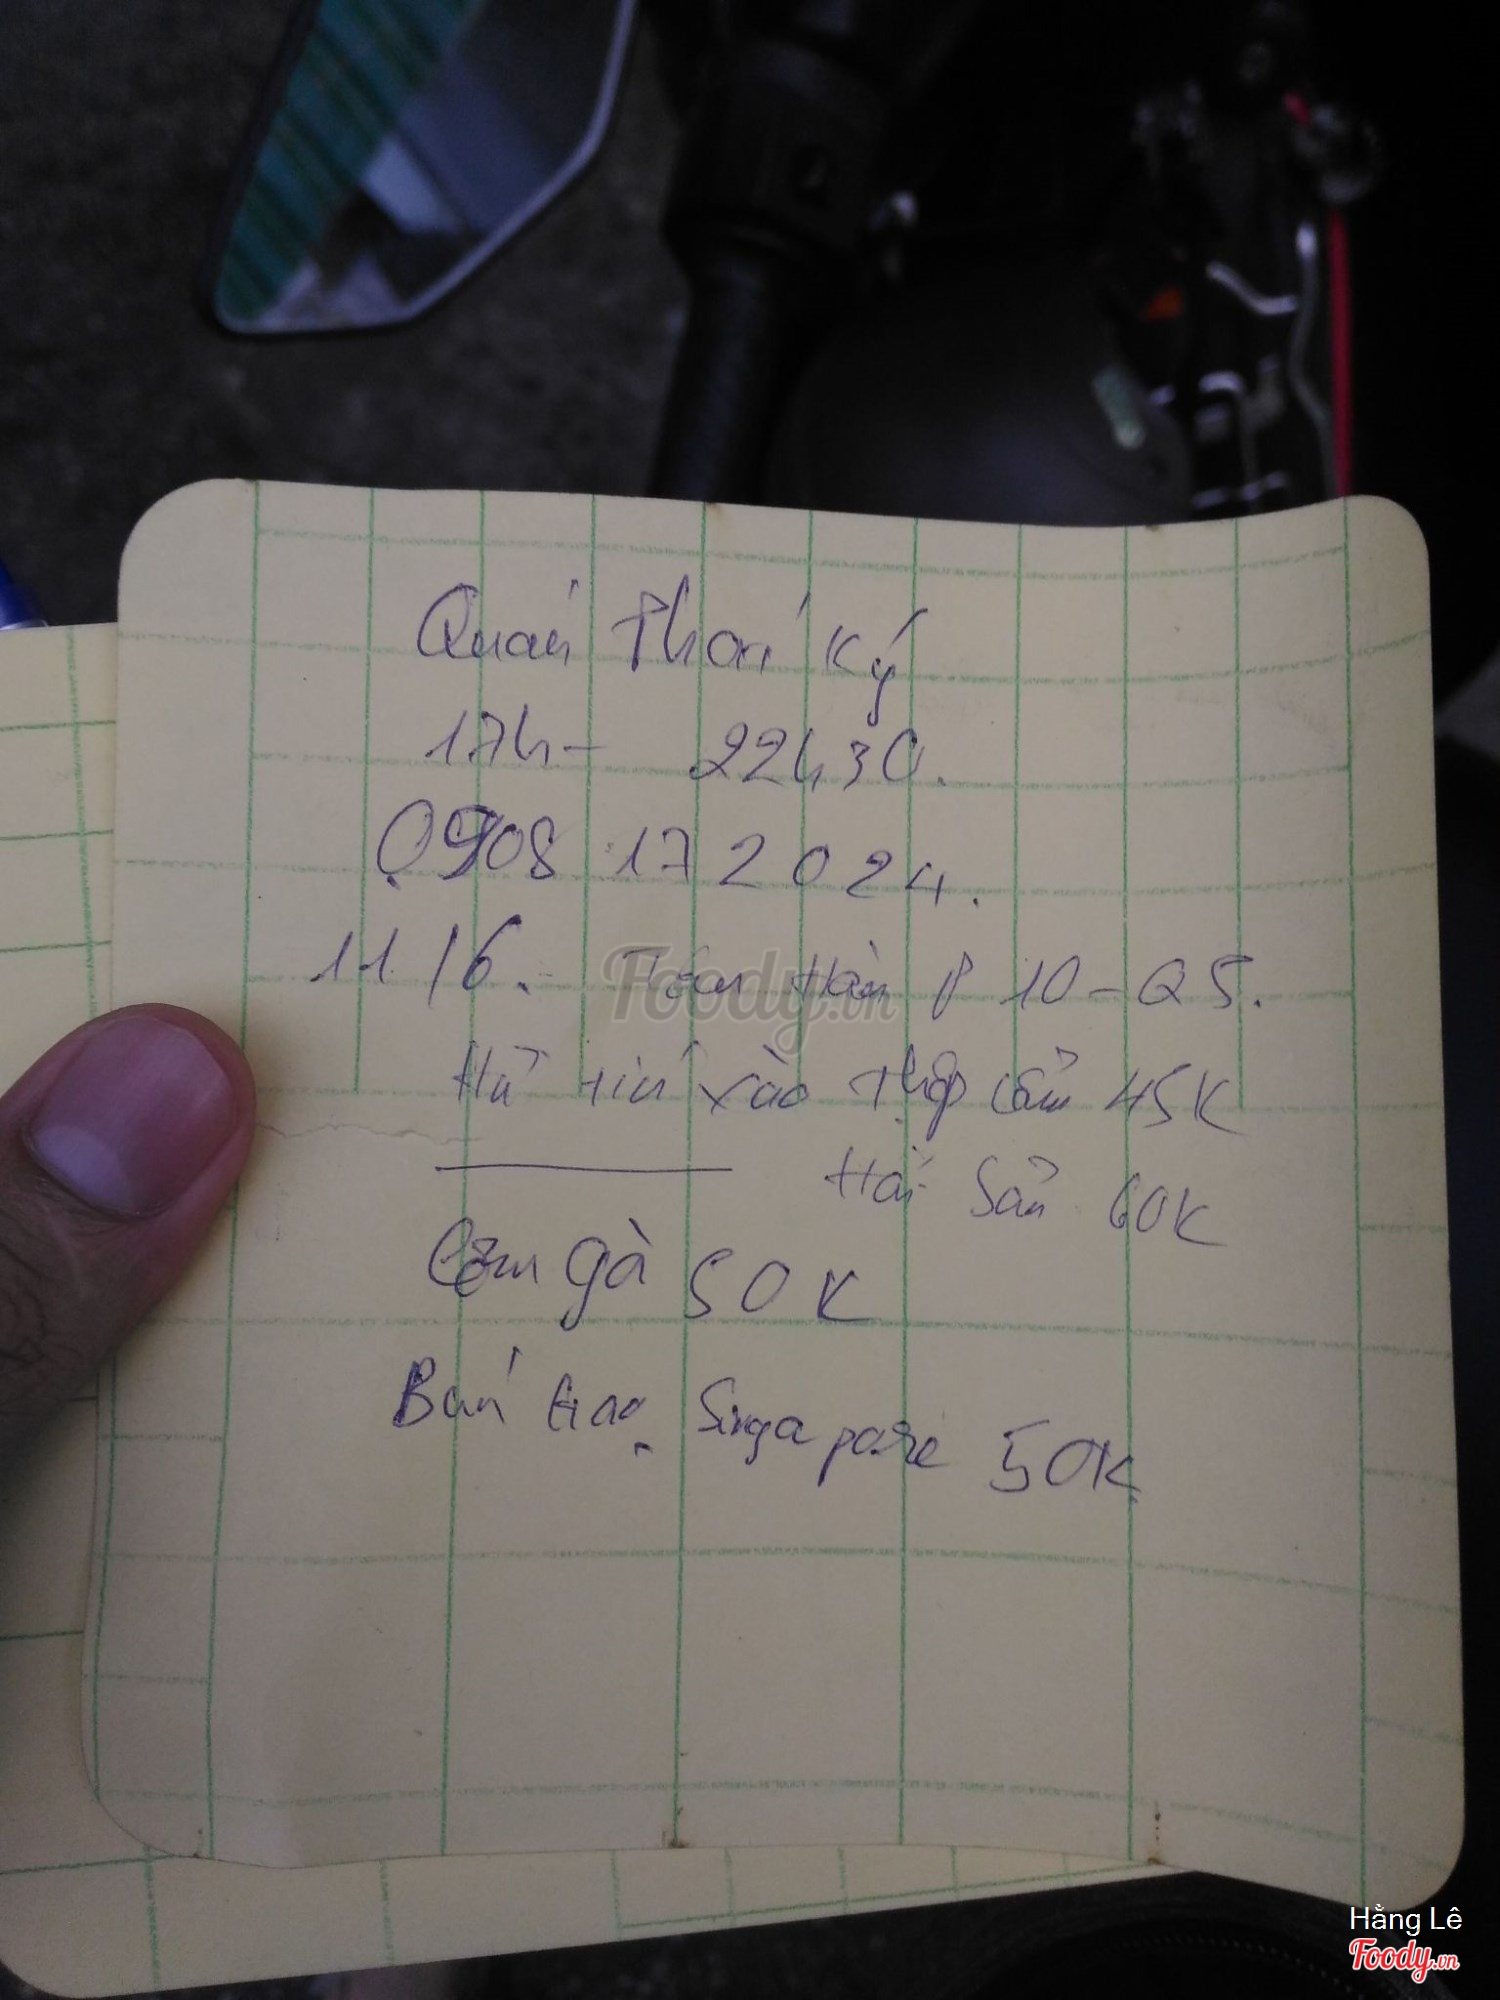 Quán Phań Ký
17h - 22h30.
0908 172024.
11/6. - Tản Đà P 10 - Q5.
Hủ tiú xào thập cẩm 45K
Hải Sản 60K
Cơm gà 50K
Bún gạo Singapore 50K
Foody.vn
Hằng Lê
Foody.vn